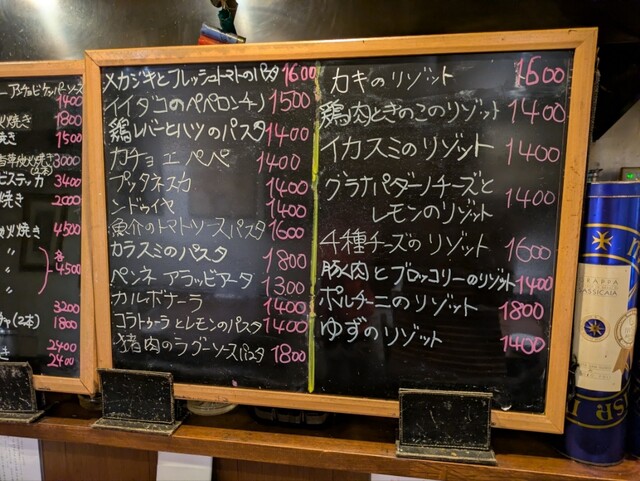 アンチョビケッパーソース
1400
火焼き 1800
焼き 1500
3000
ビステッカ 3400
焼き 2000
火焼き 4500
〃
〃 各4500
3200
(2本) 1800
2400
き 2400
メカジキとフレッシュトマトのパスタ 1600
イイダコのペペロンチーノ 1500
鶏レバーとハツのパスタ 1400
カチョ エ ペペ 1400
プッタネスカ 1400
ンドゥイヤ 1400
魚介のトマトソースパスタ 1600
カラスミのパスタ 1800
ペンネ アラッビアータ 1300
カルボナーラ 1400
コラトゥーラとレモンのパスタ 1400
猪肉のラグーソースパスタ 1800
カキのリゾット 1600
鶏肉ときのこのリゾット 1400
イカスミのリゾット 1400
グラナパダーノチーズと
レモンのリゾット 1400
4種チーズのリゾット 1600
豚肉とブロッコリーのリゾット 1400
ポルチーニのリゾット 1800
ゆずのリゾット 1400
GRAPPA
SASSICAIA